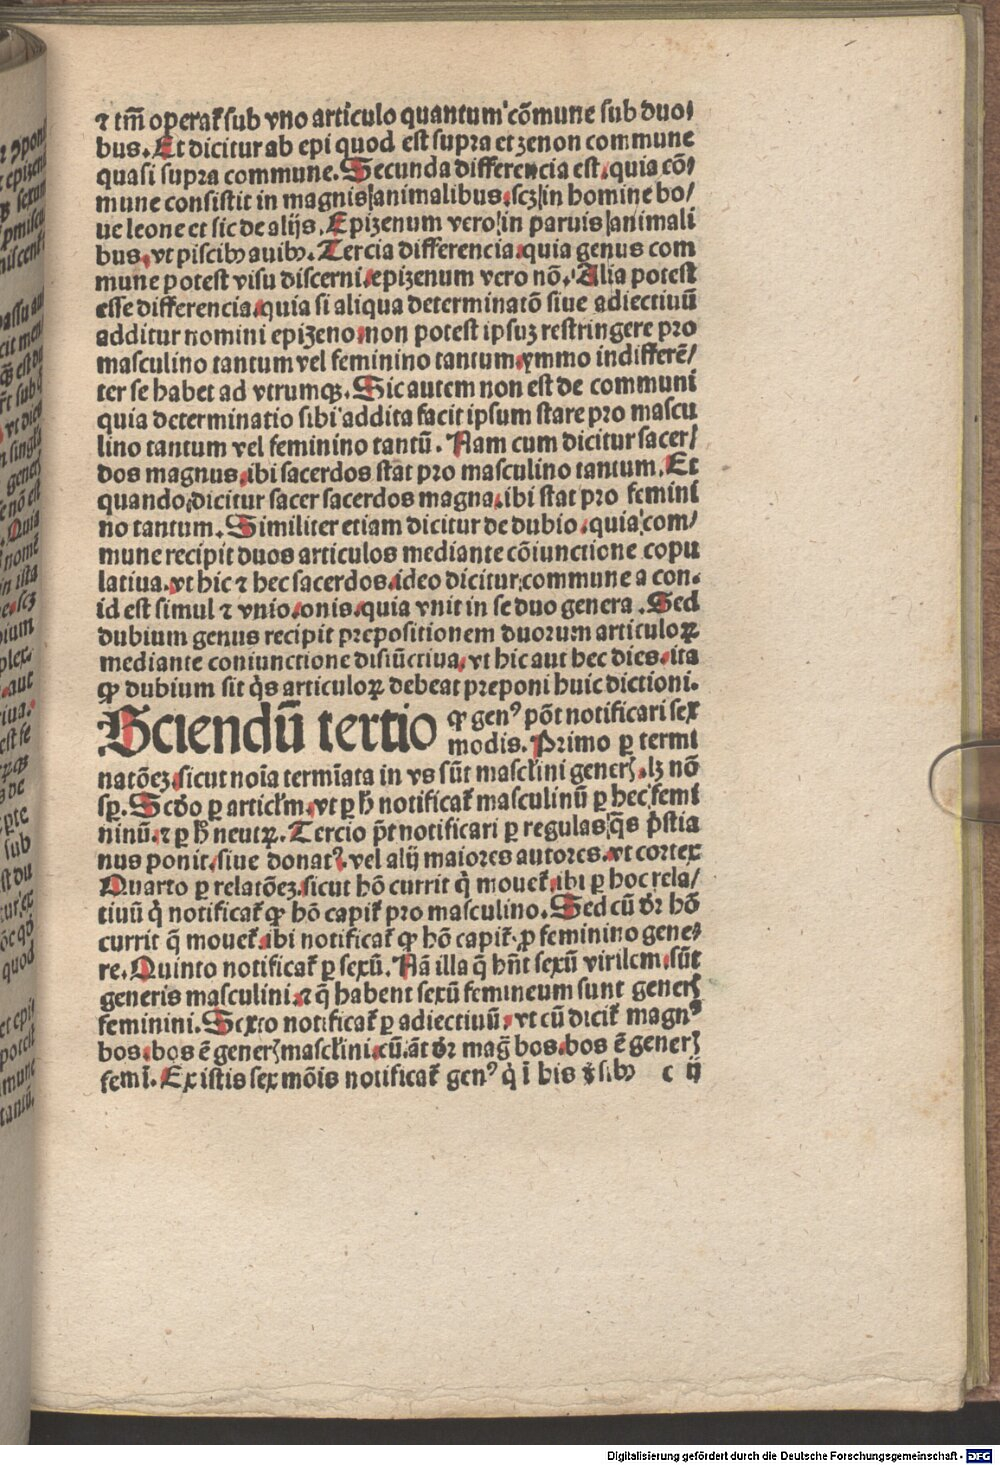 ⁊ tm̄ operat᷑ sub vno articulo quantum cōmune sub duo⸗
bus. Et dicitur ab epi quod est supra et zenon commune
quasi supra commune. Secunda differencia est. quia cō⸗
mune consistit in magnis animalibus. scꝫ in homine bo⸗
ue leone et sic de alijs. Epizenum vero in paruis animali
bus. vt piscibꝰ auibꝰ. Tercia differencia. quia genus com
mune potest visu discerni. epizenum vero nō. Alia potest
esse differencia. quia si aliqua determinatō siue adiectiuū
additur nomini epizeno. non potest ipsuꝫ restringere pro
masculino tantum vel feminino tantum. ymmo indifferē⸗
ter se habet ad vtrumqꝫ. Sic autem non est de communi
quia determinatio sibi addita facit ipsum stare pro mascu
lino tantum vel feminino tantū. Nam cum dicitur sacer⸗
dos magnus. ibi sacerdos stat pro masculino tantum. Et
quando dicitur sacer sacerdos magna. ibi stat pro femini
no tantum. Similiter etiam dicitur de dubio. quia com⸗
mune recipit duos articulos mediante cōiunctione copu
latiua. vt hic ⁊ hec sacerdos. ideo dicitur commune a con.
id est simul ⁊ vnio. onis. quia vnit in se duo genera. Sed
dubium genus recipit prepositionem duorum articuloꝝ
mediante coniunctione disiūctiua. vt hic aut hec dies. ita
ꝙ dubium sit q̇s articuloꝝ debeat preponi huic dictioni.
Sciendū tertio ꝙ genꝰ pōt notificari sex
modis. Primo ꝑ termi
natōeꝫ. sicut noīa termīata in vs sūt mascl̄ini generꝭ. lꝫ nō
sꝑ. Scd̄o ꝑ articl̄m. vt ꝑ h̄ notificat᷑ masculinū ꝑ hec femi
ninū. ⁊ ꝑ h̄ neutꝝ. Tercio p̄t notificari ꝑ regulas q̄s p̄stia
nus ponit. siue donatꝰ. vel alij maiores autores. vt cortex
Quarto ꝑ relatōeꝫ. sicut hō currit q̇ mouet᷑. ibi ꝑ hoc rela⸗
tiuū q̇ notificat᷑ ꝙ hō capit᷑ pro masculino. Sed cū dr̄ hō
currit q̄ mouet᷑. ibi notificat᷑ ꝙ hō capit᷑ ꝓ feminino gene⸗
re. Quinto notificat᷑ ꝑ sexū. Nā illa q̄ hn̄t sexū virilem. sūt
generis masculini. ⁊ q̄ habent sexū femineum sunt generꝭ
feminini. Sexto notificat᷑ ꝑ adiectiuū. vt cū dicit᷑ magnꝰ
bos. bos ē generꝭ mascl̄ini. cū āt dr̄ mag̅ bos. bos ē generꝭ
femī. Ex istis sex mōis notificat᷑ genꝰ q̇ ī his v̄sibꝰ c ij
Digitalisierung gefördert durch die Deutsche Forschungsgemeinschaft - DFG